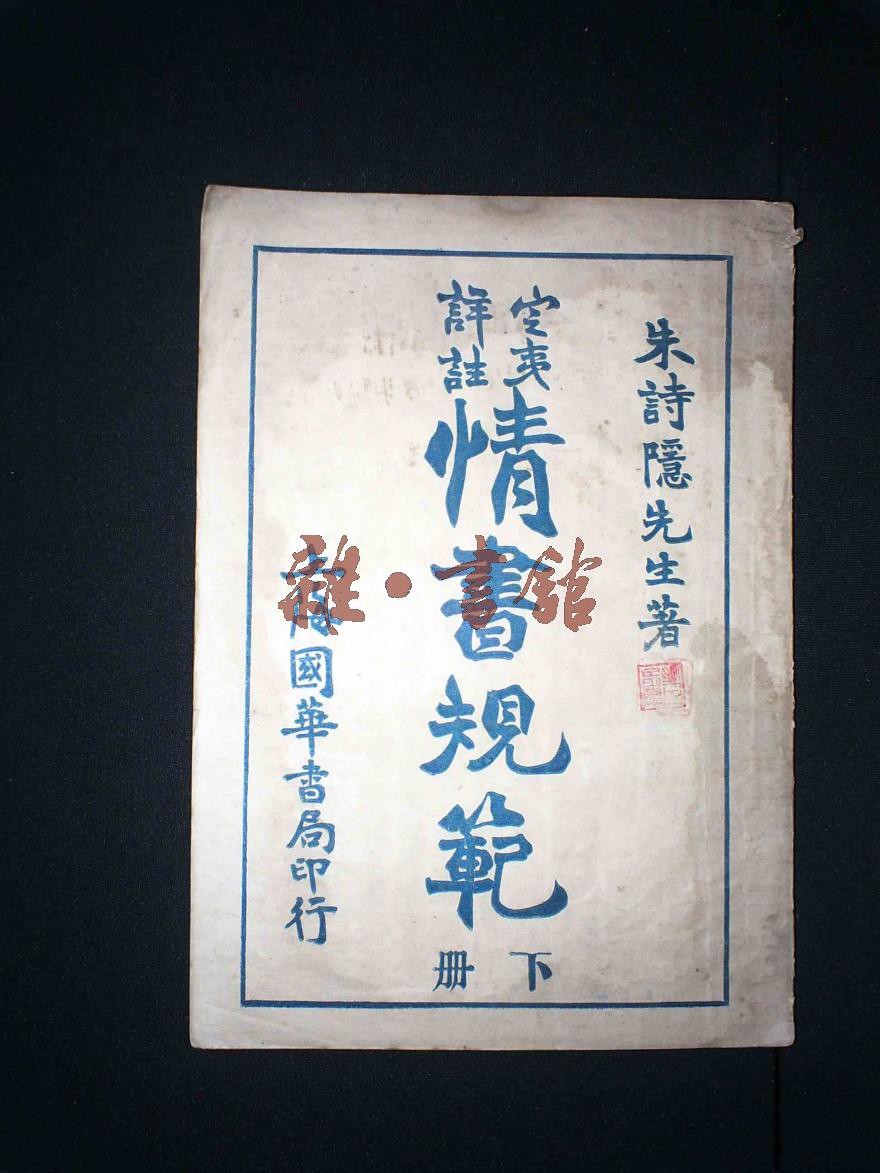 朱詩隱先生著
定夷
詳註
情書規範
下册
上海國華書局印行
雜·書館